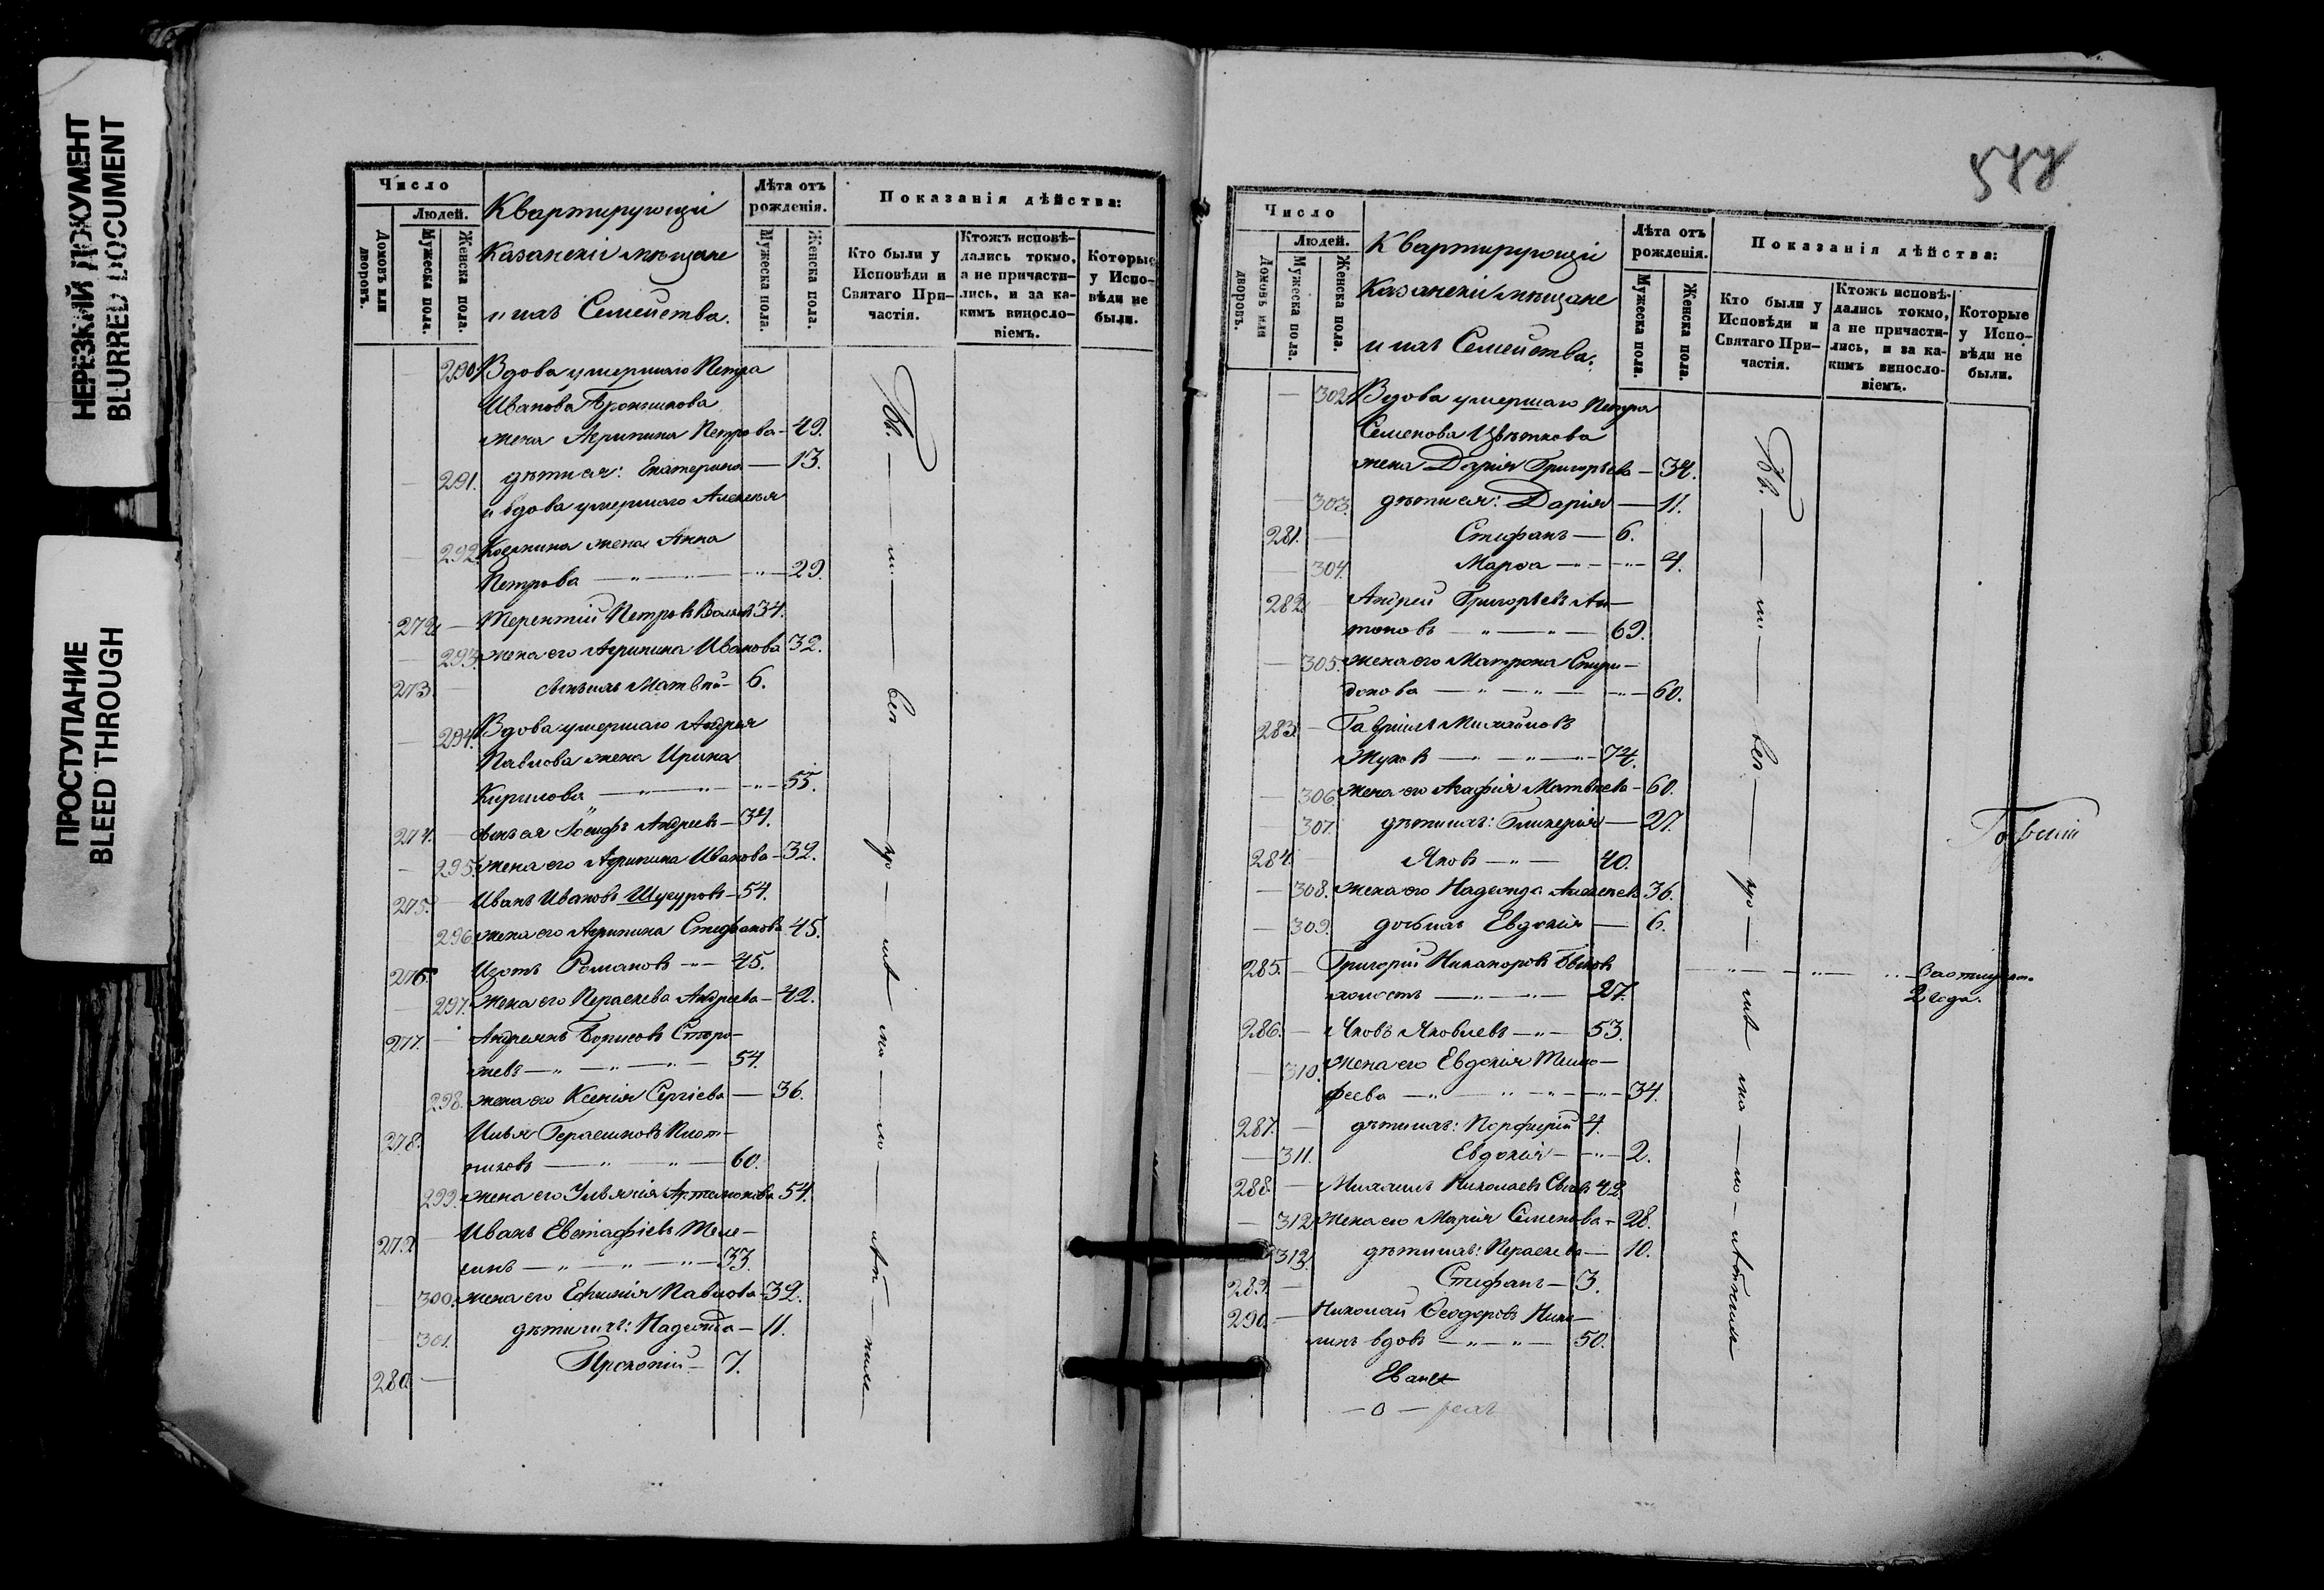 НЕРЕЗКИЙ ДОКУМЕНТ
BLURRED DOCUMENT
ПРОСТУПАНИЕ
BLEED THROUGH
Число
Людей.
Домовъ или дворовъ.
Мужеска пола.
Женска пола.
Квартирующіи
Казанскіи мѣщане
и ихъ Семейства.
Лѣта отъ рожденія.
Мужеска пола.
Женска пола.
Показанія дѣйства:
Кто были у Исповѣди и Святаго Причастія.
Ктожъ исповѣдались токмо, а не причастились, и за какимъ винословіемъ.
Которые у Исповѣди не были.
290. Вдова умершаго Петра
Иванова
жена Агрипина Петрова - 49.
291. дѣти ея: Екатерина — 13.
и вдова умершаго Алексѣя
292. жена Анна
Петрова — 29.
272. Терентій Петровъ 34.
293. жена его Агрипина Иванова 32.
273. сынъ ихъ Матвѣй - 6.
294. Вдова умершаго Андрея
Павлова жена Ирина
Кирилова — 55.
274. сынъ ея Іосифъ Андреевъ - 34.
295. жена его Агрипина Иванова - 32.
275. Иванъ Ивановъ - 54.
296. жена его Агрипина Стефанова 45.
276. Изотъ Романовъ - 45.
297. жена его Параскева Андреева - 42.
277. Андреянъ Борисовъ Сторо-
жевъ — 54.
298. жена его Ксенія Сергіева — 36.
278. Илья Герасимовъ Плот-
никовъ — 60.
299. жена его Артамонова 54.
279. Иванъ Евстафіевъ Теле-
гинъ — 33.
300. жена его Ефимія Павлова - 32.
301. дѣти ихъ: Надежда - 11.
280. Прокопій - 7.
Вв. — ш — вен — но — ив — но — ло
588
Число
Людей.
Домовъ или дворовъ.
Мужеска пола.
Женска пола.
Квартирующіи
Казанскіи мѣщане
и ихъ Семейства.
Лѣта отъ рожденія.
Мужеска пола.
Женска пола.
Показанія дѣйства:
Кто были у Исповѣди и Святаго Причастія.
Ктожъ исповѣдались токмо, а не причастились, и за какимъ винословіемъ.
Которые у Исповѣди не были.
302. Вдова умершаго Петра
Семенова Цвѣткова
жена Дарія Григорьева - 34.
303. дѣти ея: Дарія — 11.
281. Стефанъ — 6.
304. Марѳа — 4.
282. Андрей Григорьевъ Ан-
тоновъ — 69.
305. жена его Матрона Спири-
донова — 60.
283. Гавріилъ Михайловъ
Жуковъ — 74.
306. жена его Агафія Матвѣева - 60.
307. дѣти ихъ: Гликерія — 27.
284. Яковъ — 40.
308. жена его Надежда Алексѣева 36.
309. дочь ихъ Евдокія — 6.
285. Григорій Никаноровъ Бѣловъ
холостъ — 27.
2 года.
286. Яковъ Яковлевъ — 53.
310. жена его Евдокія Тимо-
феева — 34.
287. дѣти ихъ: Порфирій 4.
311. Евдокія — 2.
288. Михаилъ Николаевъ 42.
312. жена его Марія Семенова - 28.
313. дѣти ихъ: Параскева — 10.
289. Стефанъ — 3.
290. Николай Ѳеодоровъ Ники-
тинъ вдовъ — 50.